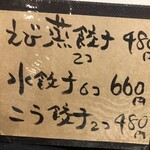 えび蒸餃子 480
2コ
水餃子 6コ 660円
こう餃子 2コ 480円